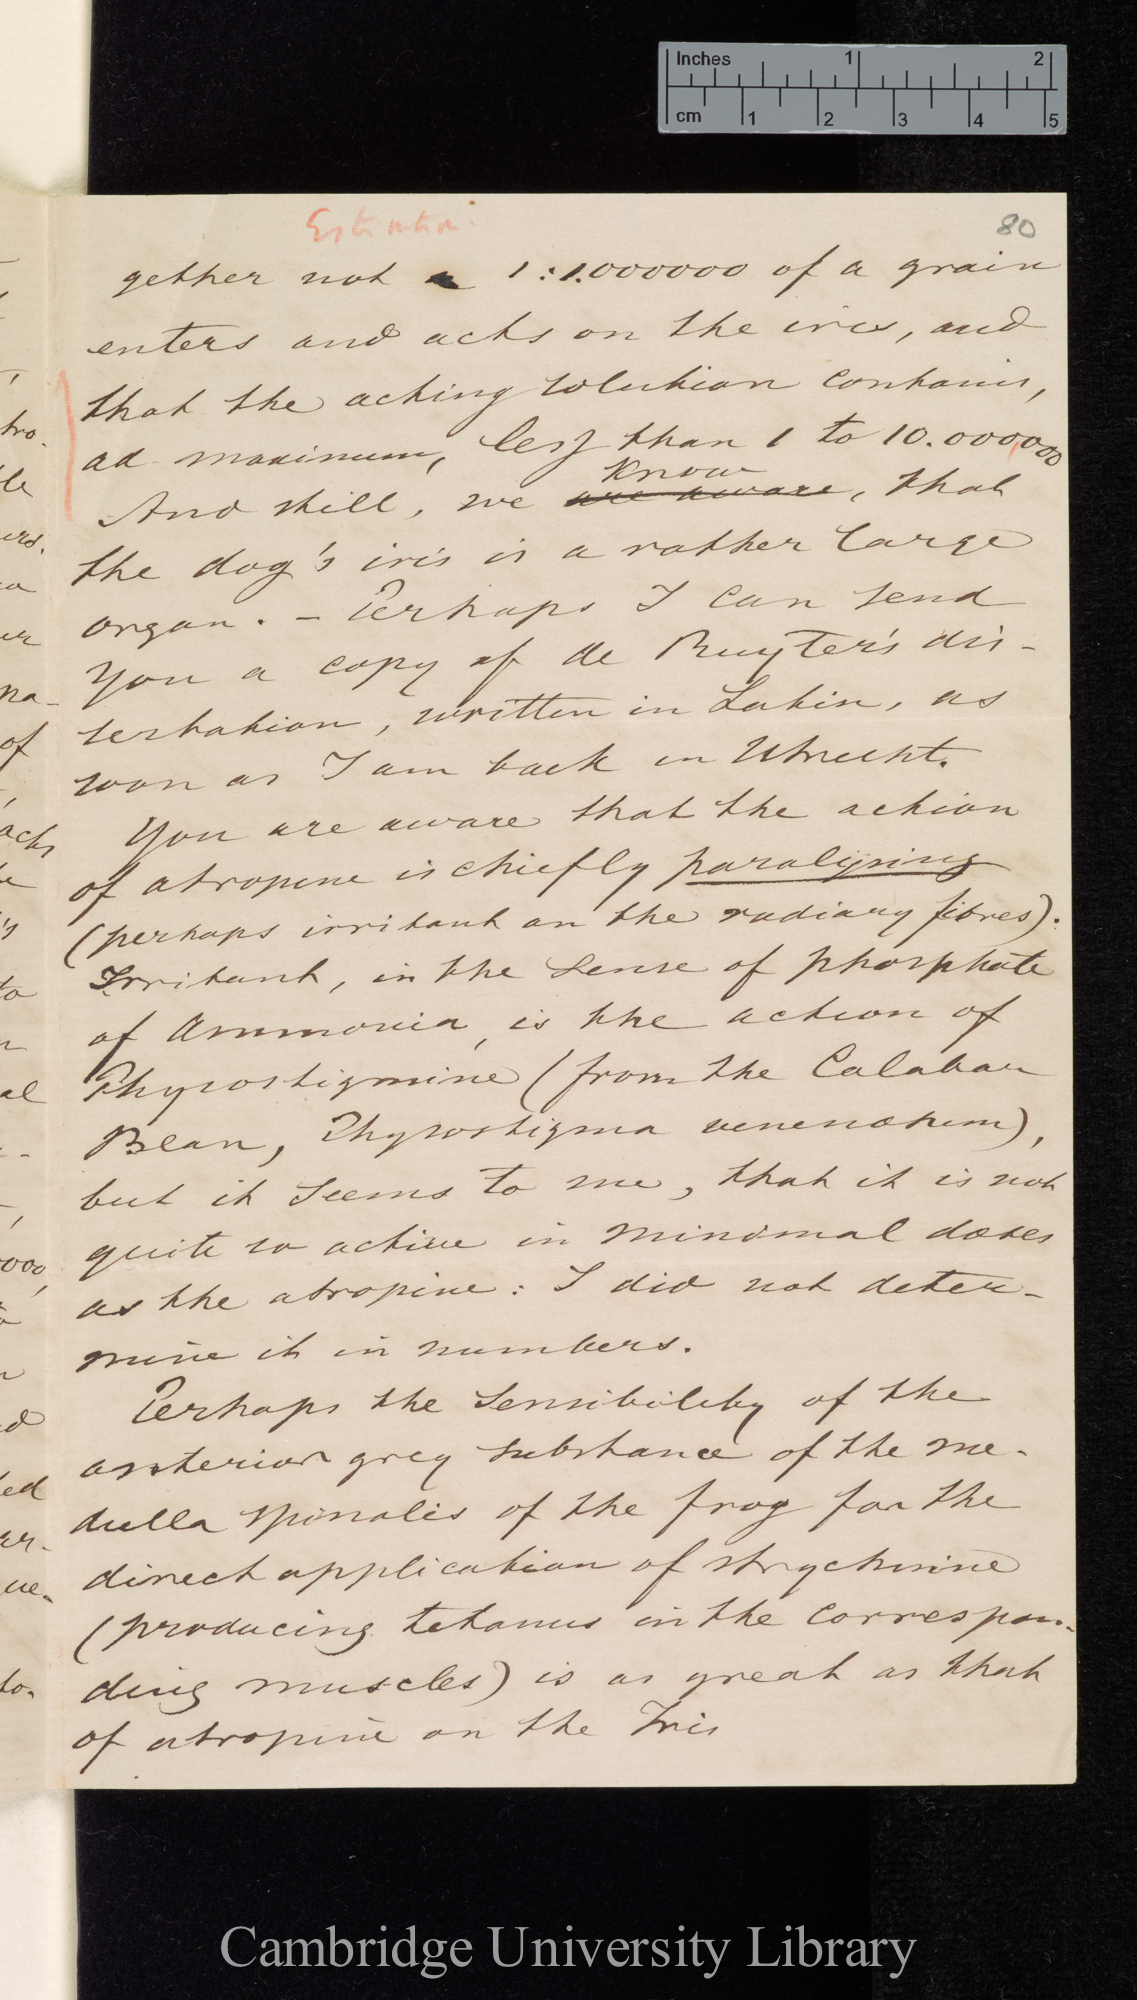 Inches 1 2
cm 1 2 3 4 5
80
gether not a 1:1.000000 of a grain
enters and acts on the iris, and
that the acting solution contains,
ad maximum, less than 1 to 10.000,000
know
And still, we are aware, that
the dog's iris is a rather large
organ. – Perhaps I can send
you a copy of de Ruyter's dis-
sertation, written in Latin, as
soon as I am back in Utrecht.
You are aware that the action
of atropine is chiefly paralysing
(perhaps irritant on the radiary fibres).
Irritant, in the sense of phosphate
of Ammonia, is the action of
Physostigmine (from the Calabar
Bean, Physostigma venenosum),
but it seems to me, that it is not
quite so active in minimal doses
as the atropine: I did not deter-
mine it in numbers.
Perhaps the sensibility of the
anterior grey substance of the me-
dulla spinalis of the frog for the
direct application of strychnine
(producing tetanus in the correspon-
ding muscles) is as great as that
of atropine on the Iris
Cambridge University Library